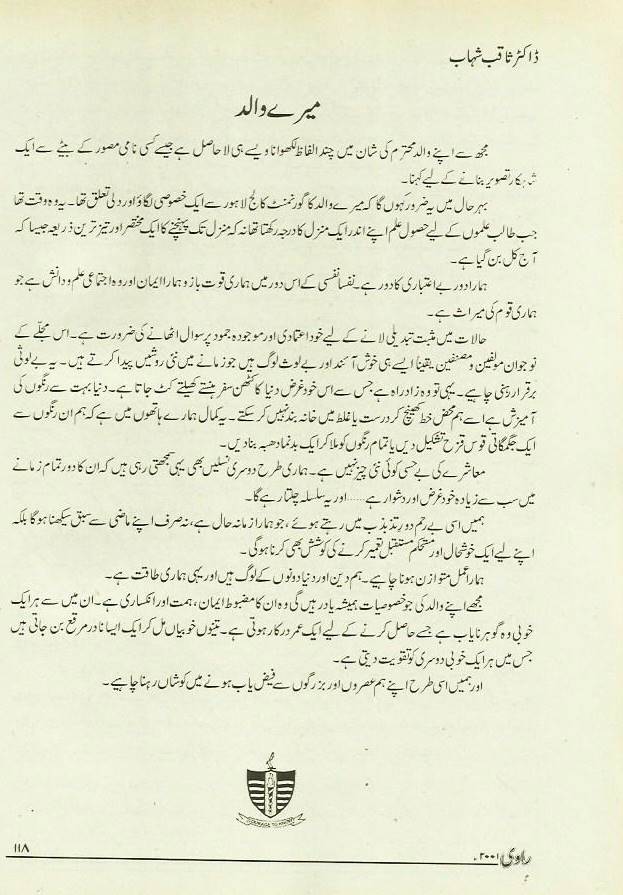 ڈاکٹر ثاقب شہاب
میرے والد
مجھ سے اپنے والد محترم کی شان میں چند الفاظ لکھوانا ویسے ہی لا حاصل ہے جیسے کسی نامی مصور کے بیٹے سے ایک
شہکار تصویر بنانے کے لیے کہنا۔
بہر حال میں یہ ضرور کہوں گا کہ میرے والد کا گورنمنٹ کالج لاہور سے ایک خصوصی لگاؤ اور دلی تعلق تھا۔ یہ وہ وقت تھا
جب طالب علموں کے لیے حصول علم اپنے اندر ایک منزل کا درجہ رکھتا تھا نہ کہ منزل تک پہنچنے کا ایک مختصر اور تیز ترین ذریعہ جیسا کہ
آج کل بن گیا ہے۔
ہمارا دور بے اعتباری کا دور ہے۔ نفسا نفسی کے اس دور میں ہماری قوت بازو ہمارا ایمان اور وہ اجتماعی علم و دانش ہے جو
ہماری قوم کی میراث ہے۔
حالات میں مثبت تبدیلی لانے کے لیے خود اعتمادی اور موجودہ جمود پر سوال اٹھانے کی ضرورت ہے۔ اس مجلّے کے
نوجوان مولفین و مصنفین یقیناً ایسے ہی خوش آئند اور بے لوث لوگ ہیں جو زمانے میں نئی روشیں پیدا کرتے ہیں۔ یہ بے لوثی
برقرار رہنی چاہیے۔ یہی تو وہ زاد راہ ہے جس سے اس خود غرض دنیا کا کٹھن سفر ہنستے کھیلتے کٹ جاتا ہے۔ دنیا بہت سے رنگوں کی
آمیزش ہے اسے ہم محض خط کھینچ کر درست یا غلط میں خانہ بند نہیں کر سکتے۔ یہ کمال ہمارے ہاتھوں میں ہے کہ ہم ان رنگوں سے
ایک جگمگاتی قوس قزح تشکیل دیں یا تمام رنگوں کو ملا کر ایک بدنما دھبہ بنا دیں۔
معاشرے کی بے حسی کوئی نئی چیز نہیں ہے۔ ہماری طرح دوسری نسلیں بھی یہی سمجھتی رہی ہیں کہ ان کا دور تمام زمانے
میں سب سے زیادہ خود غرض اور دشوار ہے ..... اور یہ سلسلہ چلتا رہے گا۔
ہمیں اسی بے رحم دور تذبذب میں رہتے ہوئے، جو ہمارا زمانہ حال ہے، نہ صرف اپنے ماضی سے سبق سیکھنا ہو گا بلکہ
اپنے لیے ایک خوشحال اور مستحکم مستقبل تعمیر کرنے کی کوشش بھی کرنا ہو گی۔
ہمارا عمل متوازن ہونا چاہیے۔ ہم دین اور دنیا دونوں کے لوگ ہیں اور یہی ہماری طاقت ہے۔
مجھے اپنے والد کی جو خصوصیات ہمیشہ یاد رہیں گی وہ ان کا مضبوط ایمان، ہمت اور انکساری ہے۔ ان میں سے ہر ایک
خوبی وہ گوہر نایاب ہے جسے حاصل کرنے کے لیے ایک عمر درکار ہوتی ہے۔ تینوں خوبیاں مل کر ایک ایسا نادر مرقع بن جاتی ہیں
جس میں ہر ایک خوبی دوسری کو تقویت دیتی ہے۔
اور ہمیں اسی طرح اپنے ہم عصروں اور بزرگوں سے فیض یاب ہونے میں کوشاں رہنا چاہیے۔
COURAGE TO KNOW
راوی ۲۰۰۱ء
۱۱۸